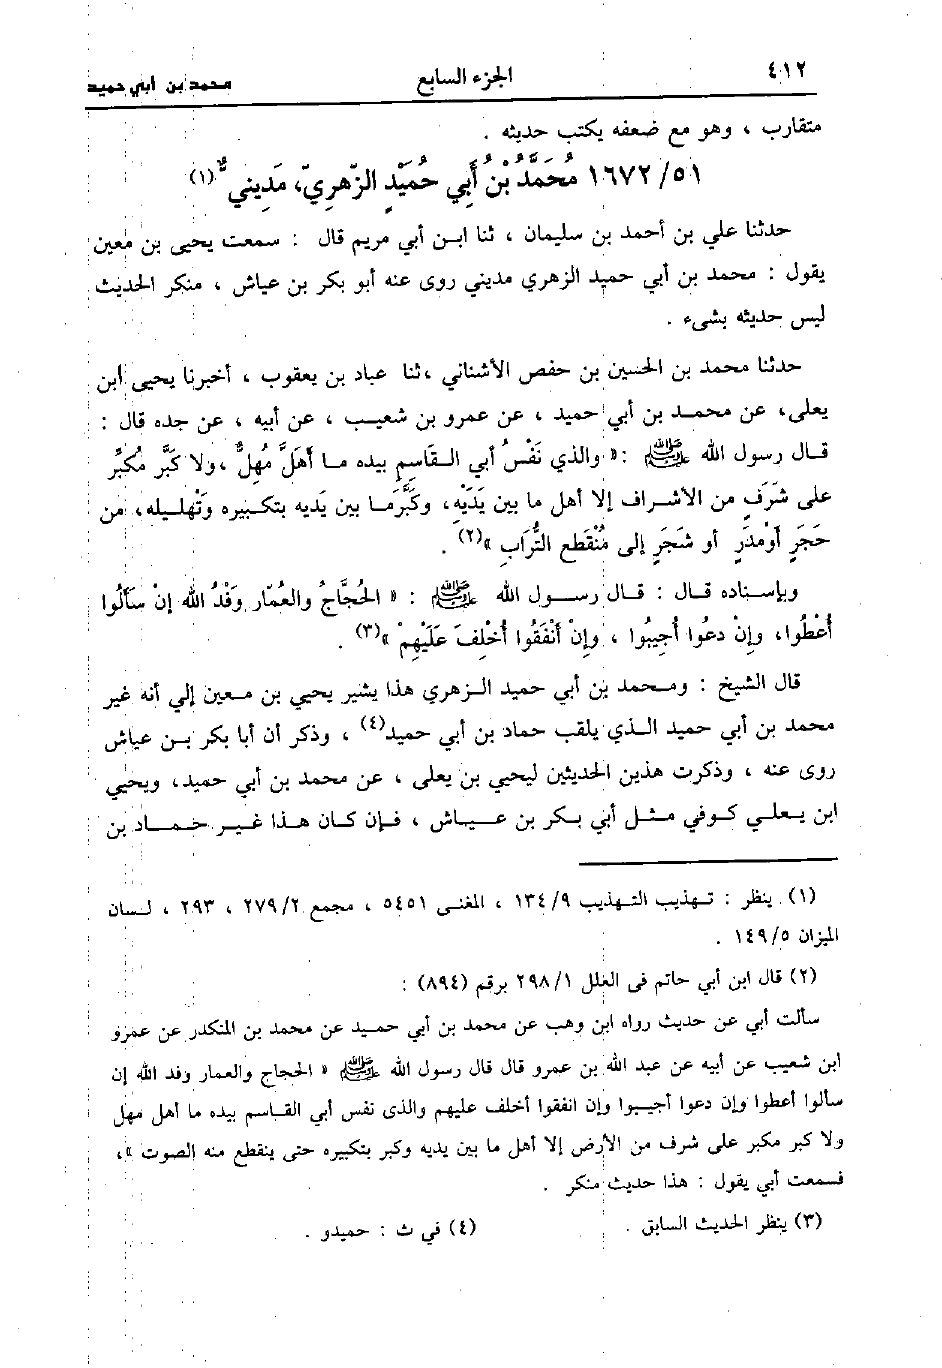 ٤١٢ الجزء السابع محمد بن أبي حميد
متقارب ، وهو مع ضعفه يكتب حديثه .
١٦٧٢/٥١ مُحَمَّدُ بْنُ أَبِي حُمَيْدٍ الزّهرِيّ، مَدِيني ٌ(١)
حدثنا علي بن أحمد بن سليمان ، ثنا ابن أبي مريم قال : سمعت يحيى بن معين
يقول : محمد بن أبي حميد الزهري مديني روى عنه أبو بكر بن عياش ، منكر الحديث
ليس حديثه بشىء .
حدثنا محمد بن الحسين بن حفص الأشناني ،ثنا عباد بن يعقوب ، أخبرنا يحيى ابن
يعلى، عن محمد بن أبي حميد ، عن عمرو بن شعيب ، عن أبيه ، عن جده قال :
قال رسول الله ﷺ :« والذي نَفْسُ أبي القَاسِمِ بيده ما أَهَلَّ مُهِلٌّ ،ولا كَبَّر مُكبِّر
على شَرَفٍ من الأشراف إلا أهل ما بين يَدَيْهِ، وكَبَّرَما بين يَديه بتكبيره وتَهْليله، من
حَجَرٍ أوْمدَرٍ أو شَجَرٍ إلى مُنْقَطع التُّرَابِ »(٢) .
وبإسناده قال : قال رسول الله ﷺ : « الحُجَّاجُ والعُمّار وَفْدُ الله إنْ سَأَلُوا
أُعْطُوا، وإِنْ دعُوا أُجِيبُوا ، وإنْ أَنْفَقُوا أُخْلِفَ عَلَيْهِمْ »(٣) .
قال الشيخ : ومحمد بن أبي حميد الزهري هذا يشير يحيي بن معين إلي أنه غير
محمد بن أبي حميد الذي يلقب حماد بن أبي حميد(٤) ، وذكر أن أبا بكر بن عياش
روى عنه ، وذكرت هذين الحديثين ليحيي بن يعلى ، عن محمد بن أبي حميد، ويحيي
ابن يعلي كوفي مثل أبي بكر بن عياش ، فإن كان هذا غير حماد بن
(١) ينظر : تهذيب التهذيب ١٣٤/٩ ، المغنى ٥٤٥١ ، مجمع ٢٧٩/٢ ، ٢٩٣ ، لسان
الميزان ١٤٩/٥ .
(٢) قال ابن أبي حاتم فى العلل ٢٩٨/١ برقم (٨٩٤) :
سألت أبي عن حديث رواه ابن وهب عن محمد بن أبي حميد عن محمد بن المنكدر عن عمرو
ابن شعيب عن أبيه عن عبد الله بن عمرو قال قال رسول الله ﷺ « الحجاج والعمار وفد الله إن
سألوا أعطوا وإن دعوا أجيبوا وإن انفقوا أخلف عليهم والذى نفس أبي القاسم بيده ما أهل مهل
ولا كبر مكبر على شرف من الأرض إلا أهل ما بين يديه وكبر بتكبيره حتى ينقطع منه الصوت »،
فسمعت أبي يقول : هذا حديث منكر .
(٣) ينظر الحديث السابق . (٤) في ث : حميدو .